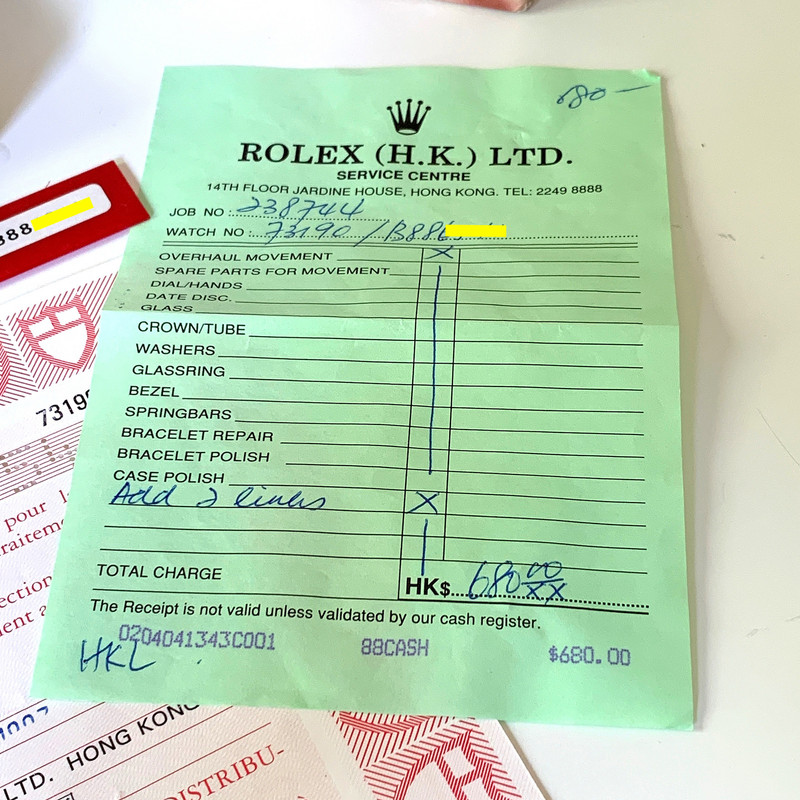 680—
ROLEX (H.K.) LTD.
SERVICE CENTRE
14TH FLOOR JARDINE HOUSE, HONG KONG. TEL: 2249 8888
JOB NO: 238744
WATCH NO: 73190 / B886
OVERHAUL MOVEMENT X
SPARE PARTS FOR MOVEMENT
DIAL/HANDS
DATE DISC.
GLASS
CROWN/TUBE
WASHERS
GLASSRING
BEZEL
SPRINGBARS
BRACELET REPAIR
BRACELET POLISH
CASE POLISH
Add 2 links X
TOTAL CHARGE HK$ 680 00/XX
The Receipt is not valid unless validated by our cash register.
0204041343C001 88CASH $680.00
HKL
888
7319
pour
LTD. HONG KONG
DISTRIBU-